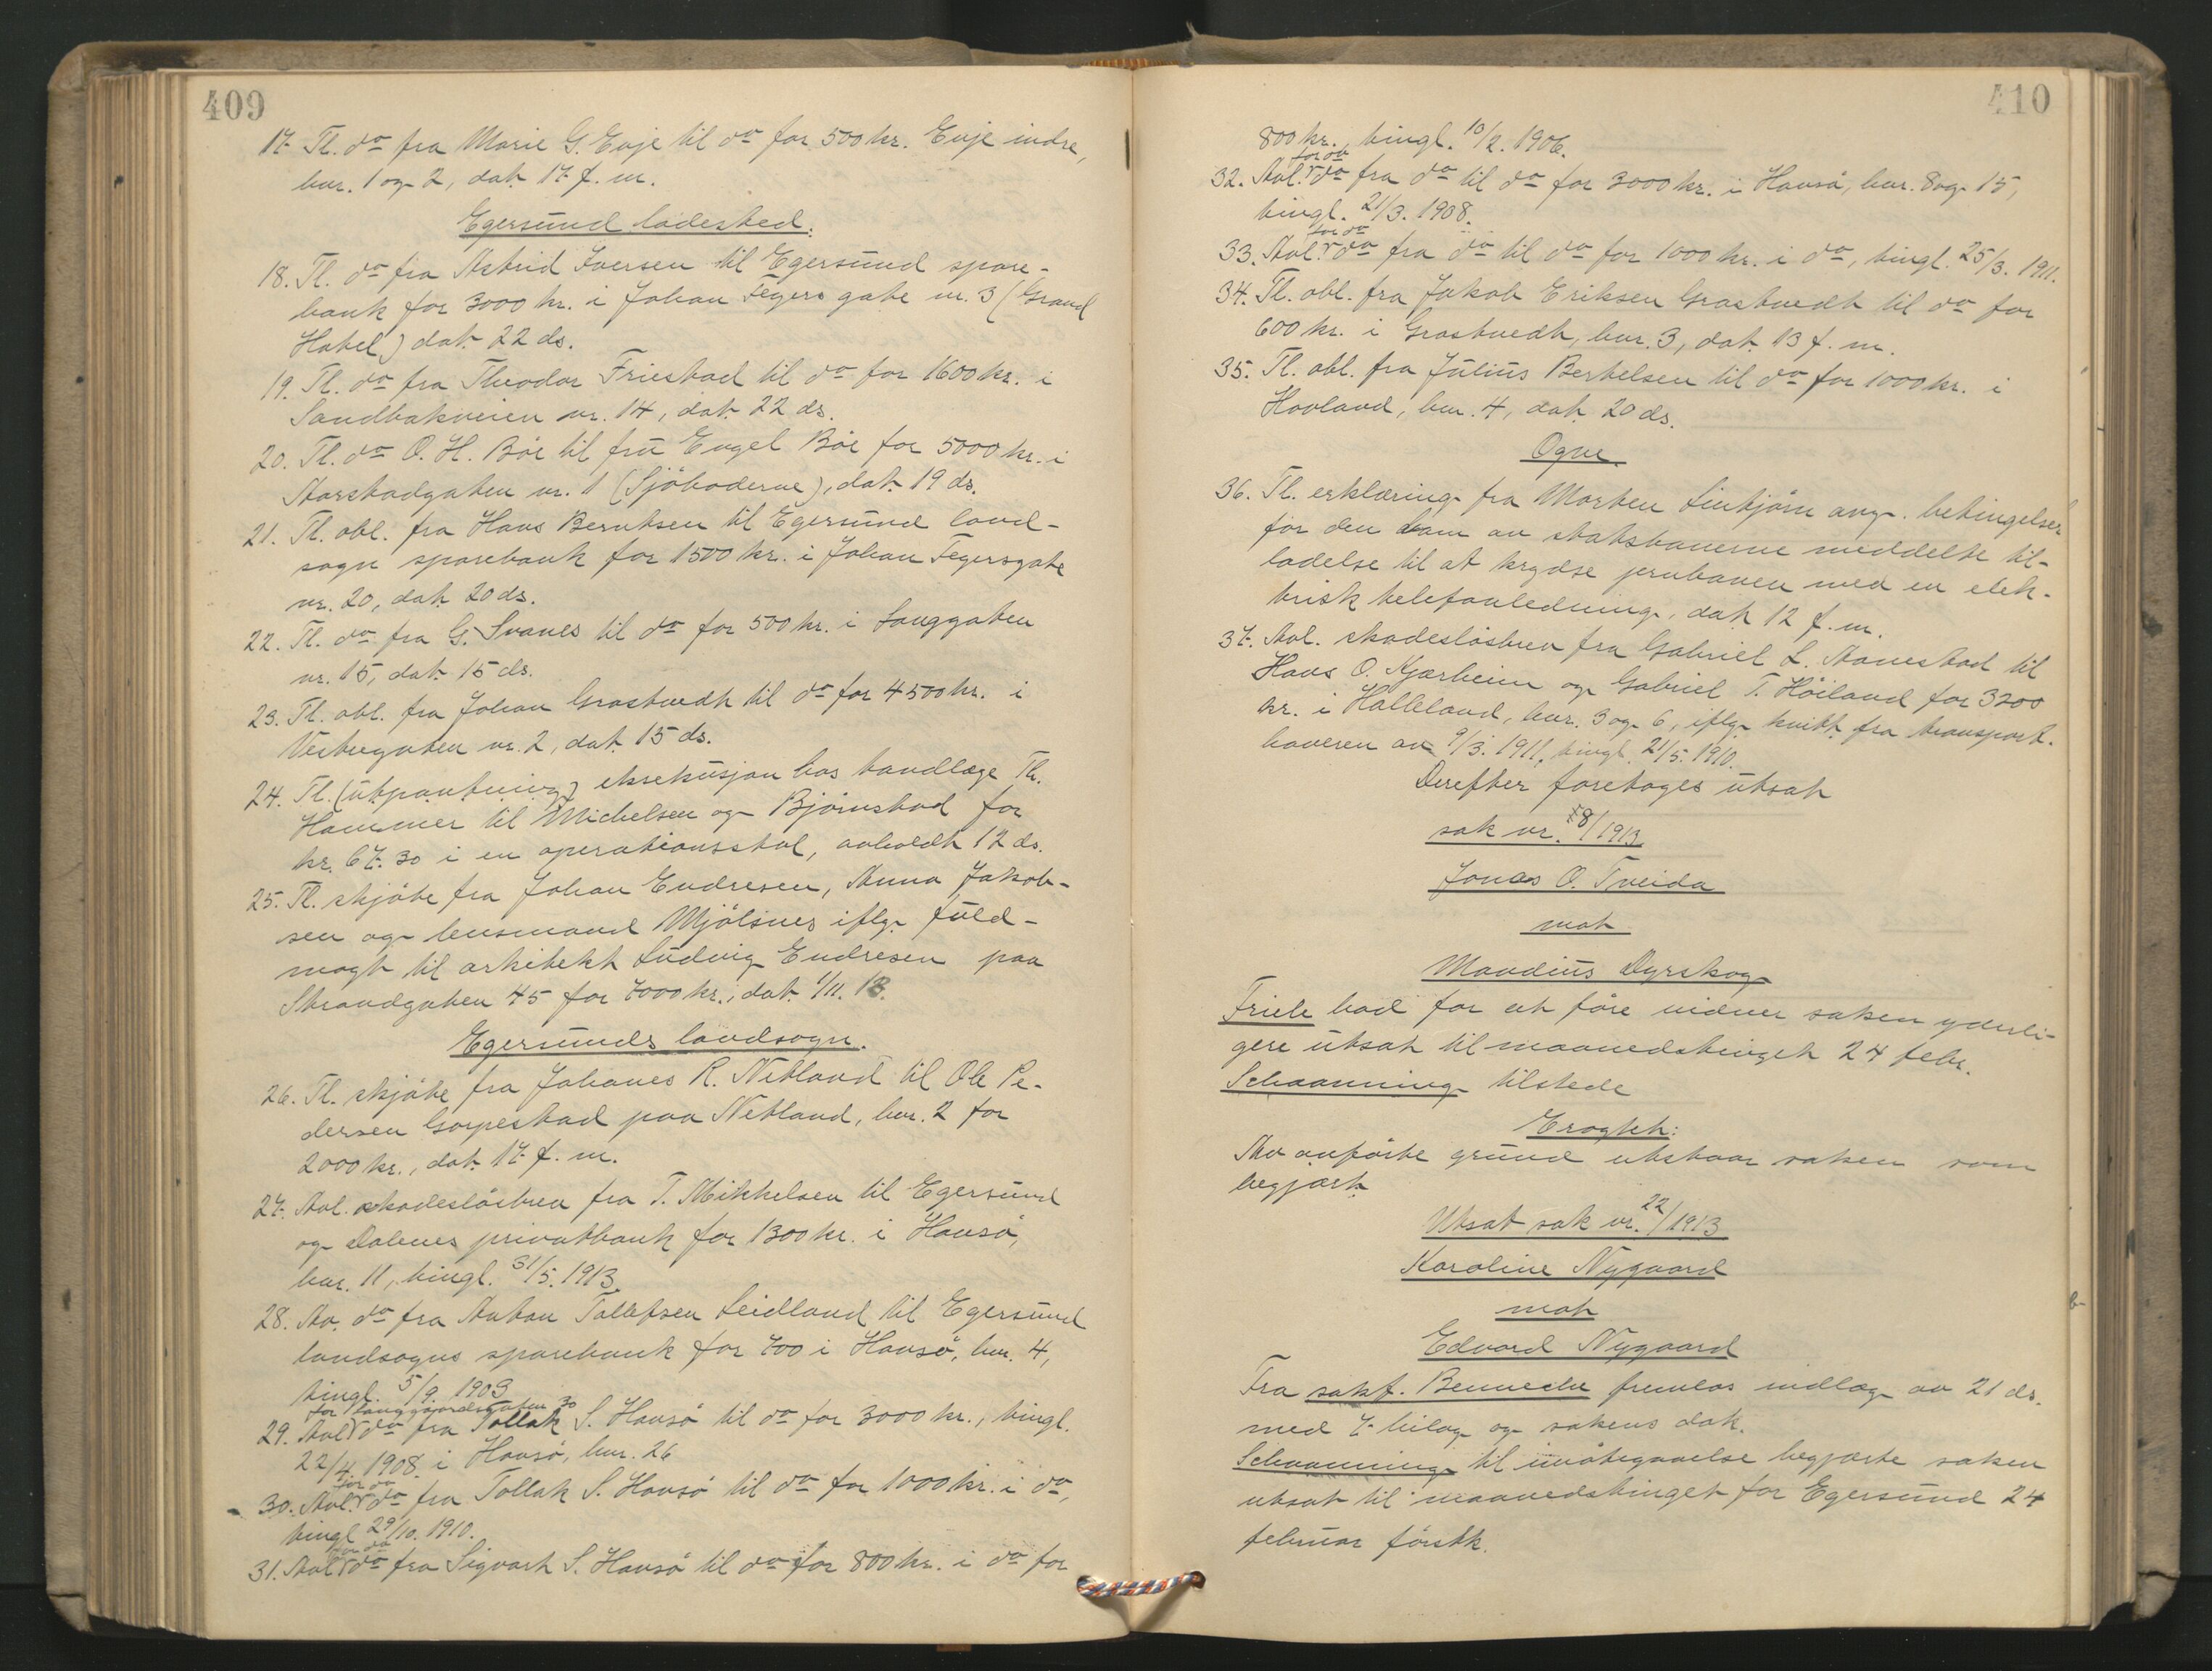 409
17. Tl. do fra Marie G. Evje til do for 500 kr. Evje indre,
bnr. 1 og 2, dat. 17 f. m.
Egersund ladested.
18. Tl. do fra Astrid Iversen til Egersund spare-
bank for 3000 kr. i Johan Fegers gate nr. 3 (Grand
Hotel) dat. 22 ds.
19. Tl. do fra Theodor Friestad til do for 1600 kr. i
Sandbakveien nr. 14, dat. 22 ds.
20. Tl. do O. H. Böe til fru Engel Böe for 5000 kr. i
Aarstadgaten nr. 1 (Sjöboderne), dat. 19 ds.
21. Tl. obl. fra Hans Berntsen til Egersund land-
sogn sparebank for 1500 kr. i Johan Fegersgate
nr. 20, dat. 20 ds.
22. Tl. do fra G. Svanes til do for 500 kr. i Langgaten
nr. 15, dat. 15 ds.
23. Tl. obl. fra Johan Grastvedt til do for 4500 kr. i
Vestregaten nr. 2, dat. 15 ds.
24. Tl. (utpantning) eksekusjon hos tandlæge Th.
Hammer til Michelsen og Björnstad for
kr. 67.30 i en operationsstol, avholdt 12 ds.
25. Tl. skjöte fra Johan Endresen, Anna Jakob-
sen og lensmand Mjölsnes iflg. fuld-
magt til arkitekt Ludvig Endresen paa
Strandgaten 45 for 7000 kr., dat. 1/11. 13.
Egersunds landsogn.
26. Tl. skjöte fra Johanes R. Netland til Ole Pe-
dersen Gorpestad paa Netland, bnr. 2 for
2000 kr., dat. 17 f. m.
27. Avl. skadeslösbrev fra T. Mikkelsen til Egersund
og Dalenes privatbank for 1300 kr. i Hovsö,
bnr. 11, tingl. 31/5. 1913.
28. Av. do fra Anton Tollefsen Leidland til Egersund
landsogns sparebank for 700 i Hovsö, bnr. 4,
tingl. 5/9. 1903
for Langgaardsgaten 30
29. Avl. do fra Tollak S. Hovsö til do for 3000 kr., tingl.
22/4. 1908. i Hovsö, bnr. 26
for do
30. Avl. do fra Tollak S. Hovsö til do for 1000 kr. i do,
tingl. 29/10. 1910.
for do
31. Avl. do fra Sigvart S. Hovsö til do for 800 kr. i do for
410
800 kr., tingl. 10/2. 1906.
for do
32. Avl. do fra do til do for 3000 kr. i Hovsö, bnr. 8 og 15,
tingl. 21/3. 1908.
for do
33. Avl. do fra do til do for 1000 kr. i do, tingl. 25/3. 1911.
34. Tl. obl. fra Jakob Eriksen Grastvedt til do for
600 kr. i Grastvedt, bnr. 3, dat. 13 f. m.
35. Tl. obl. fra Julius Bertelsen til do for 1000 kr. i
Hovland, bnr. 4, dat. 20 ds.
Ogne.
36. Tl. erklæring fra Morten Lintjörn ang. betingelser
for den ham av statsbanerne meddelte til-
ladelse til at krydse jernbanen med en elek-
trisk telefonledning, dat. 12 f. m.
37. Avl. skadeslösbrev fra Gabriel L. Aanestad til
Hans O. Kjærheim og Gabriel T. Höiland for 3200
kr. i Halleland, bnr. 3 og 6, iflg. kvitt. fra transport-
haveren av 9/3. 1911, tingl. 21/5. 1910.
Derefter foretoges utsat
sak nr. 18/1913
Jonas O. Tveida
mot
Maudius Dyrskog
Friele bad for at före vidner saken yderli-
gere utsat til maanedstinget 24 febr.
Schaanning tilstede
Eragtet:
Av anförte grund utstaar saken som
begjært.
Utsat sak nr. 22/1913
Karoline Nygaard
mot
Edvard Nygaard
Fra sakf. Benneche fremlas indlæg av 21 ds.
med 7 bilag og sakens dok.
Schaanning til imötegaaelse begjærte saken
utsat til maanedstinget for Egersund 24
februar förstk.